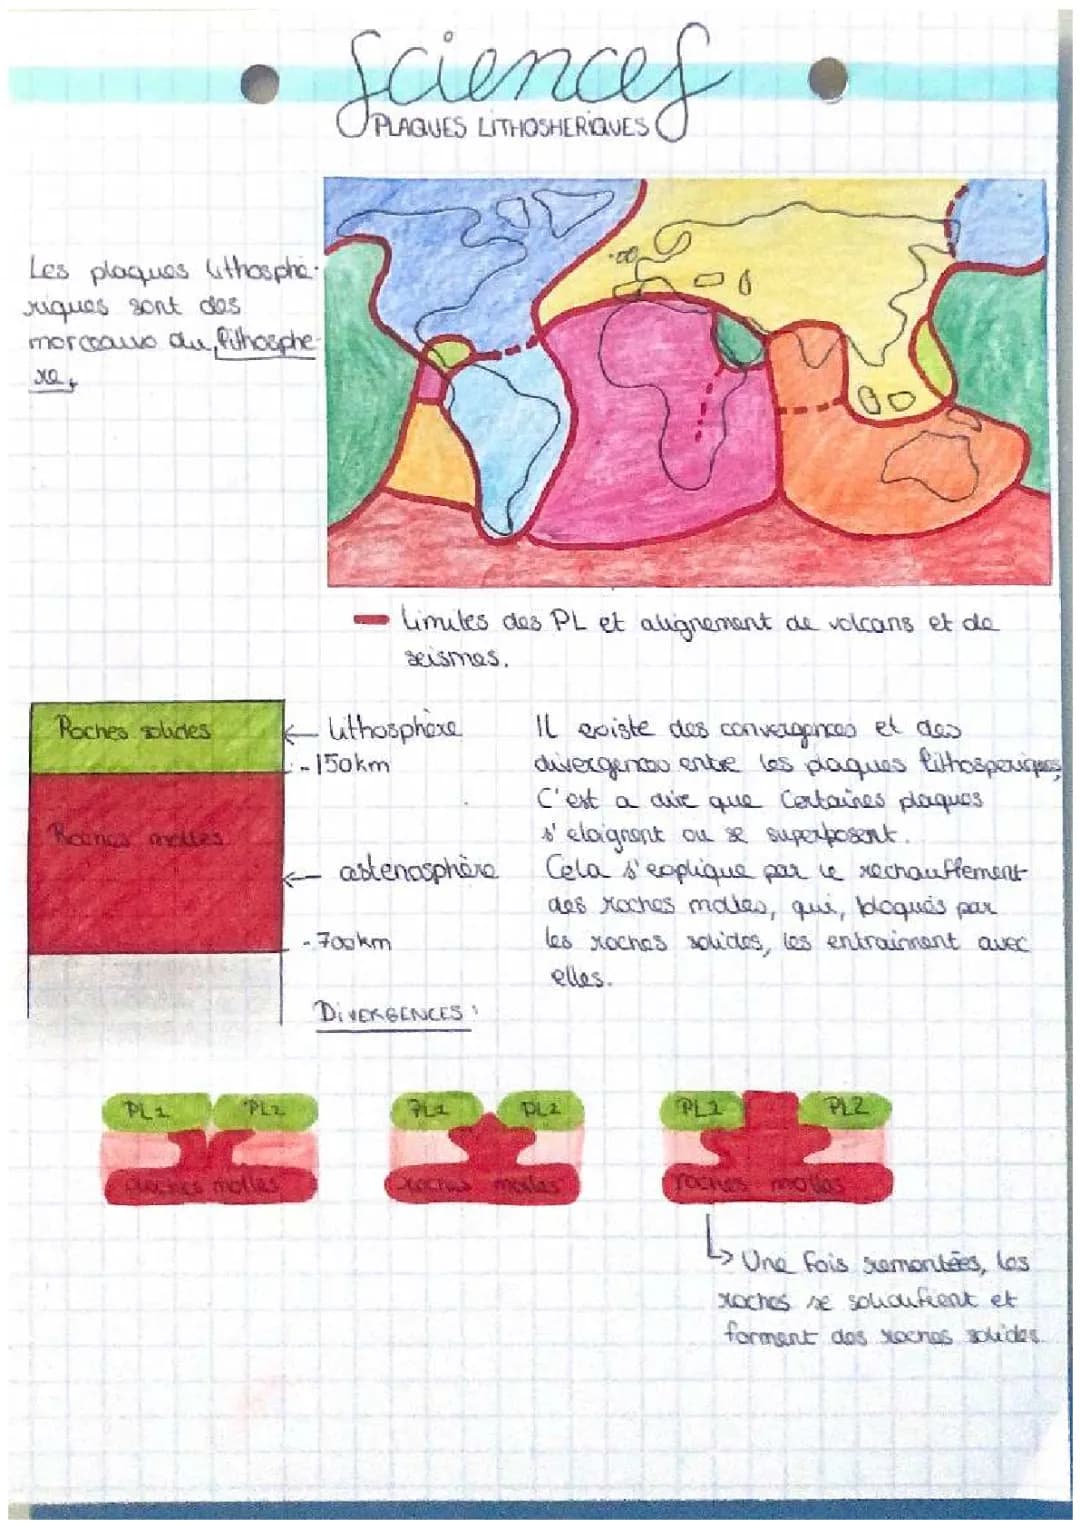 Sciences
PLAQUES LITHOSHERIQUES
Les plaques lithosphé-
riques sont des
morceaux du lithosphe-
re.
Limites des PL et alignement de volcans et de
seismes.
Roches solides
lithosphère
- 150km
Roches molles
astenosphère
- 700km
IL existe des convergences et des
divergences entre les plaques lithosperiques,
C'est a dire que Certaines plaques
s'elaignent ou se superposent.
Cela s'explique par le rechauffement
des roches molles, qui, bloqués par
les roches solides, les entrainnent avec
elles.
DIVERGENCES :
PL1 PL2 PL1 PL2 PL1 PL2
roches molles roches molles roches molles
Une fois remontées, les
roches se solidifient et
forment des roches solides.